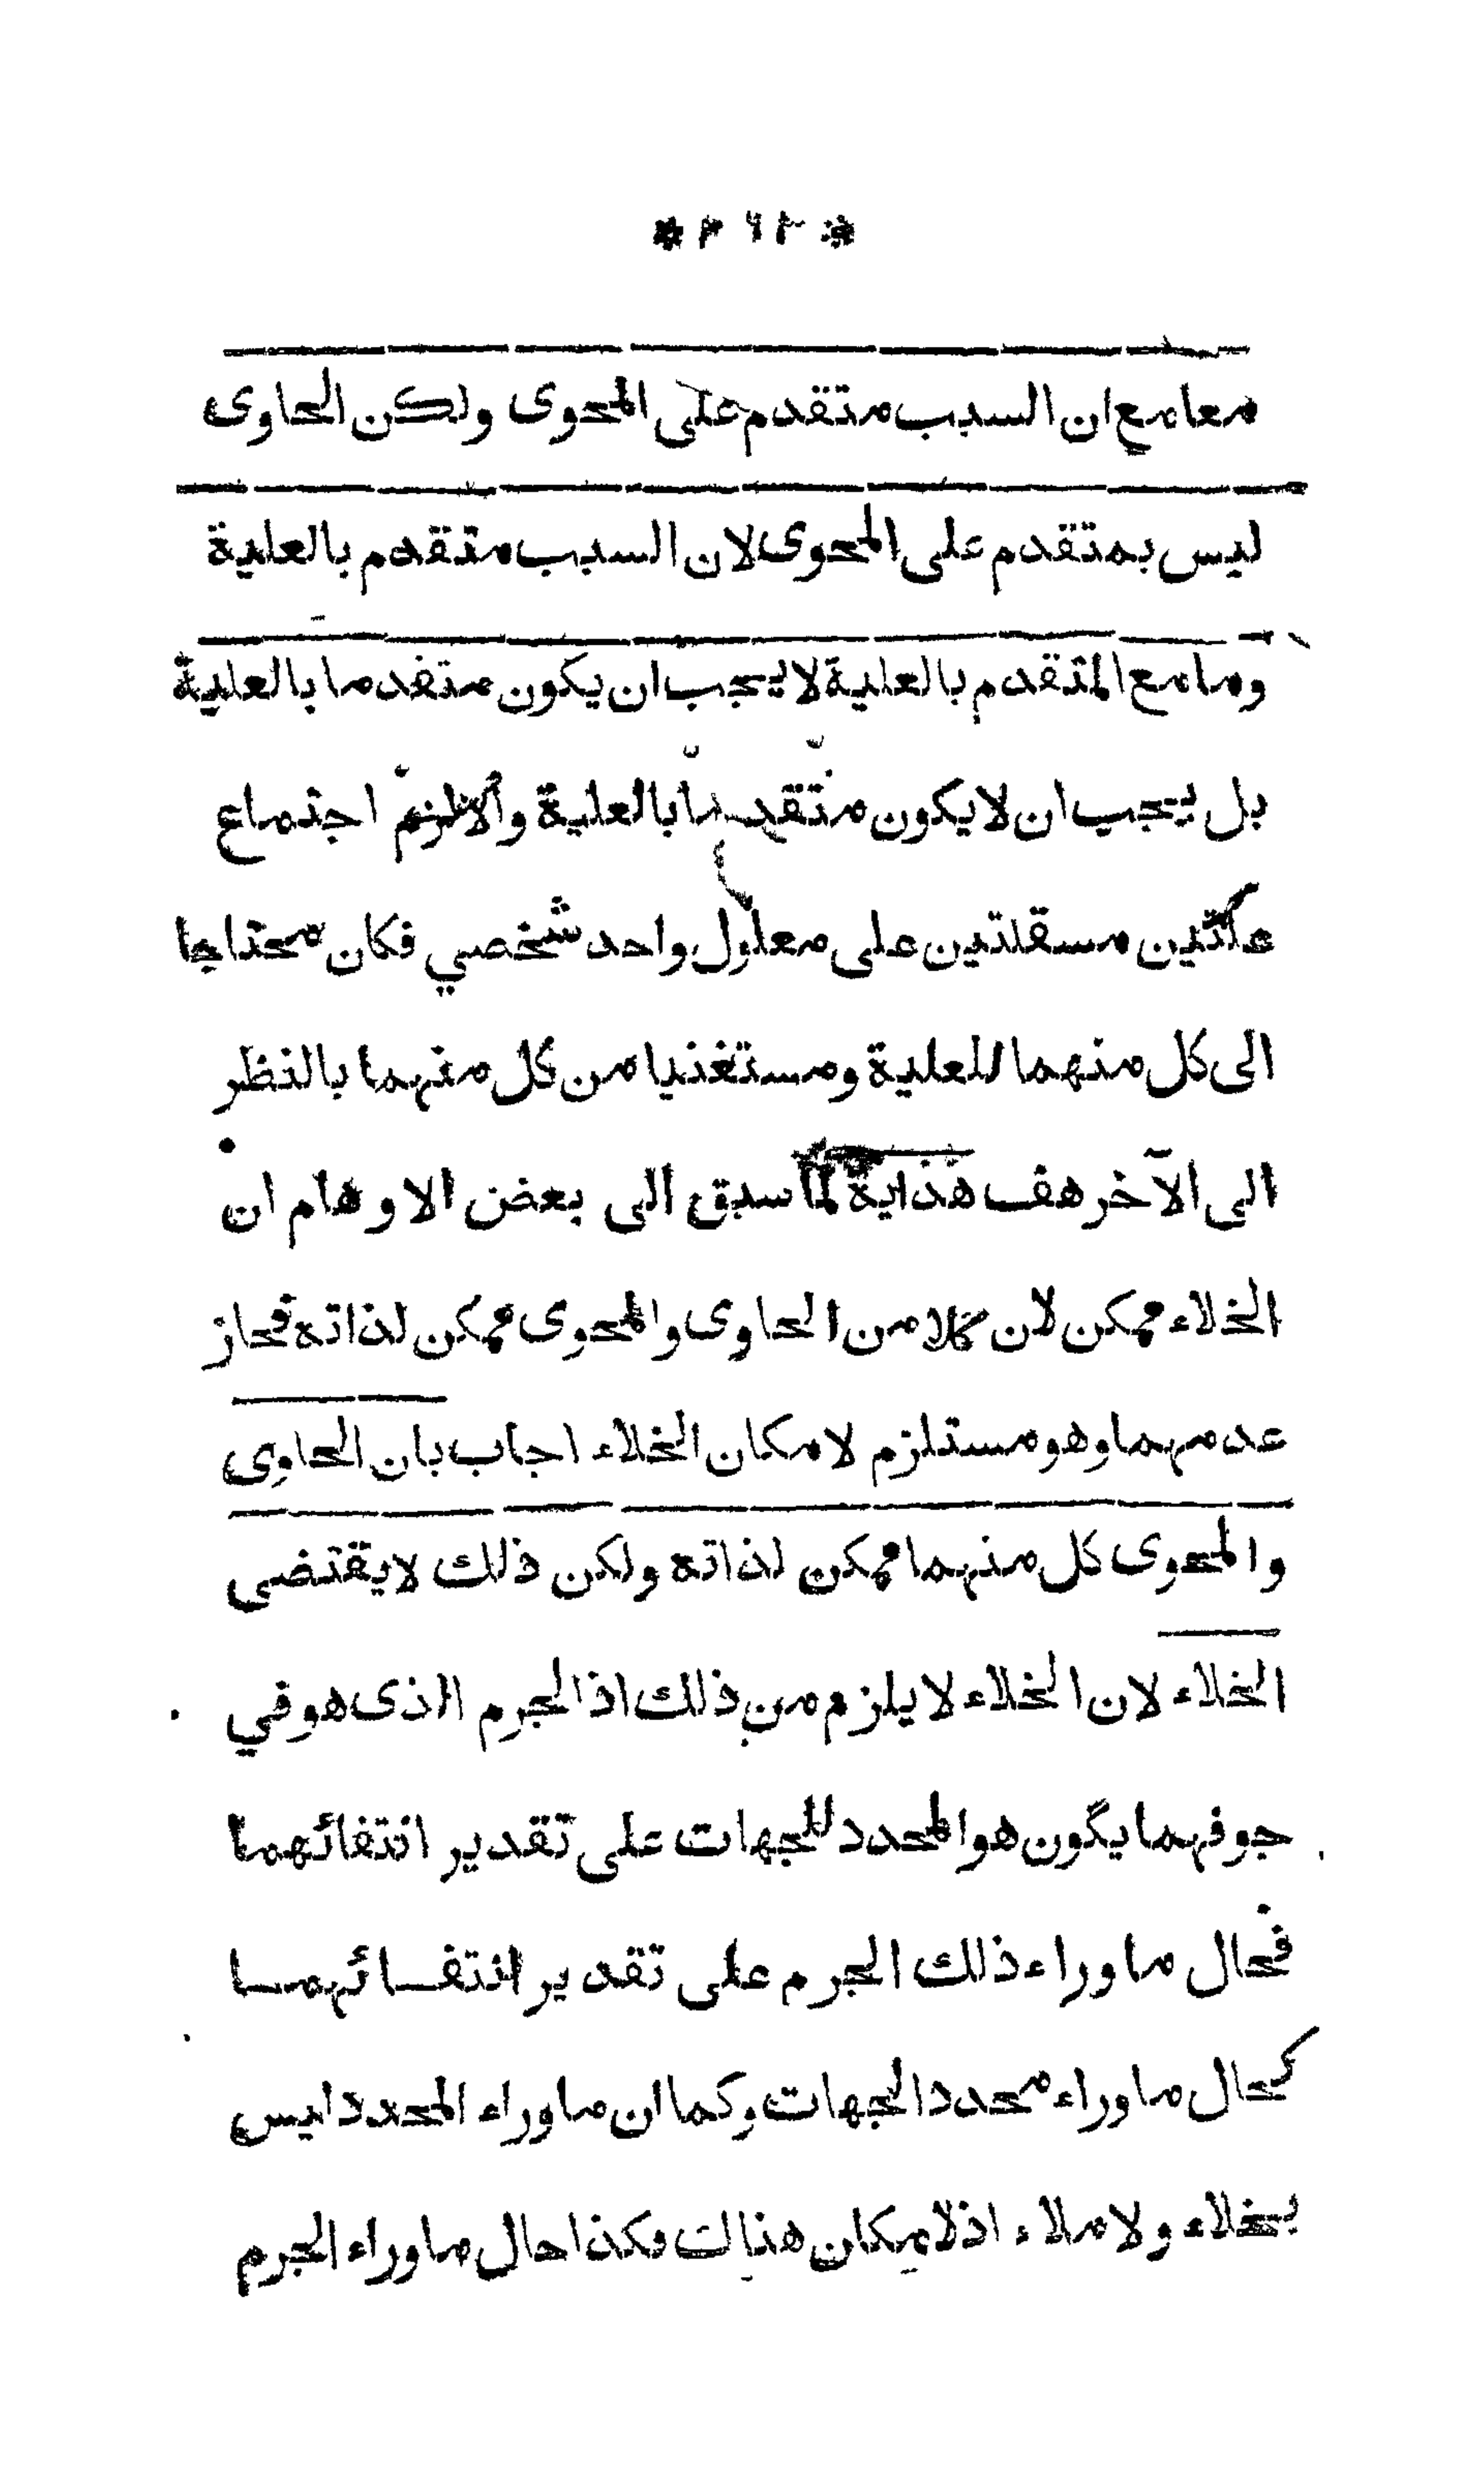 * ٣٦٢ *
معا مع ان السبب متقدم على المحوى ولكن الحاوى
ليس بمتقدم على المحوى لان السبب متقدم بالعلية
وما مع المتقدم بالعلية لا يجب ان يكون متقدما بالعلية
بل يجب ان لا يكون متقدما بالعلية والا لزم اجتماع
علتين مسقلتين على معلول واحد شخصي فكان محتاجا
الى كل منهما للعلية ومستغنيا من كل منهما بالنظر
الى الآخر هف هداية لما سبق الى بعض الاوهام ان
الخلاء ممكن لان كلا من الحاوى والمحوى ممكن لذاته فجاز
عدمهما وهو مستلزم لامكان الخلاء اجاب بان الحاوى
والمحوى كل منهما ممكن لذاته ولكن ذلك لا يقتضى
الخلاء لان الخلاء لا يلزم من ذلك اذ الجرم الذى هو في
جوفهما يكون هو المحدد للجهات على تقدير انتفائهما
فحال ما وراء ذلك الجرم على تقدير انتفائهما
كحال ما وراء محدد الجهات وكما ان ما وراء المحدد ليس
بخلاء ولا ملاء اذ لا مكان هنالك فكذا حال ما وراء الجرم